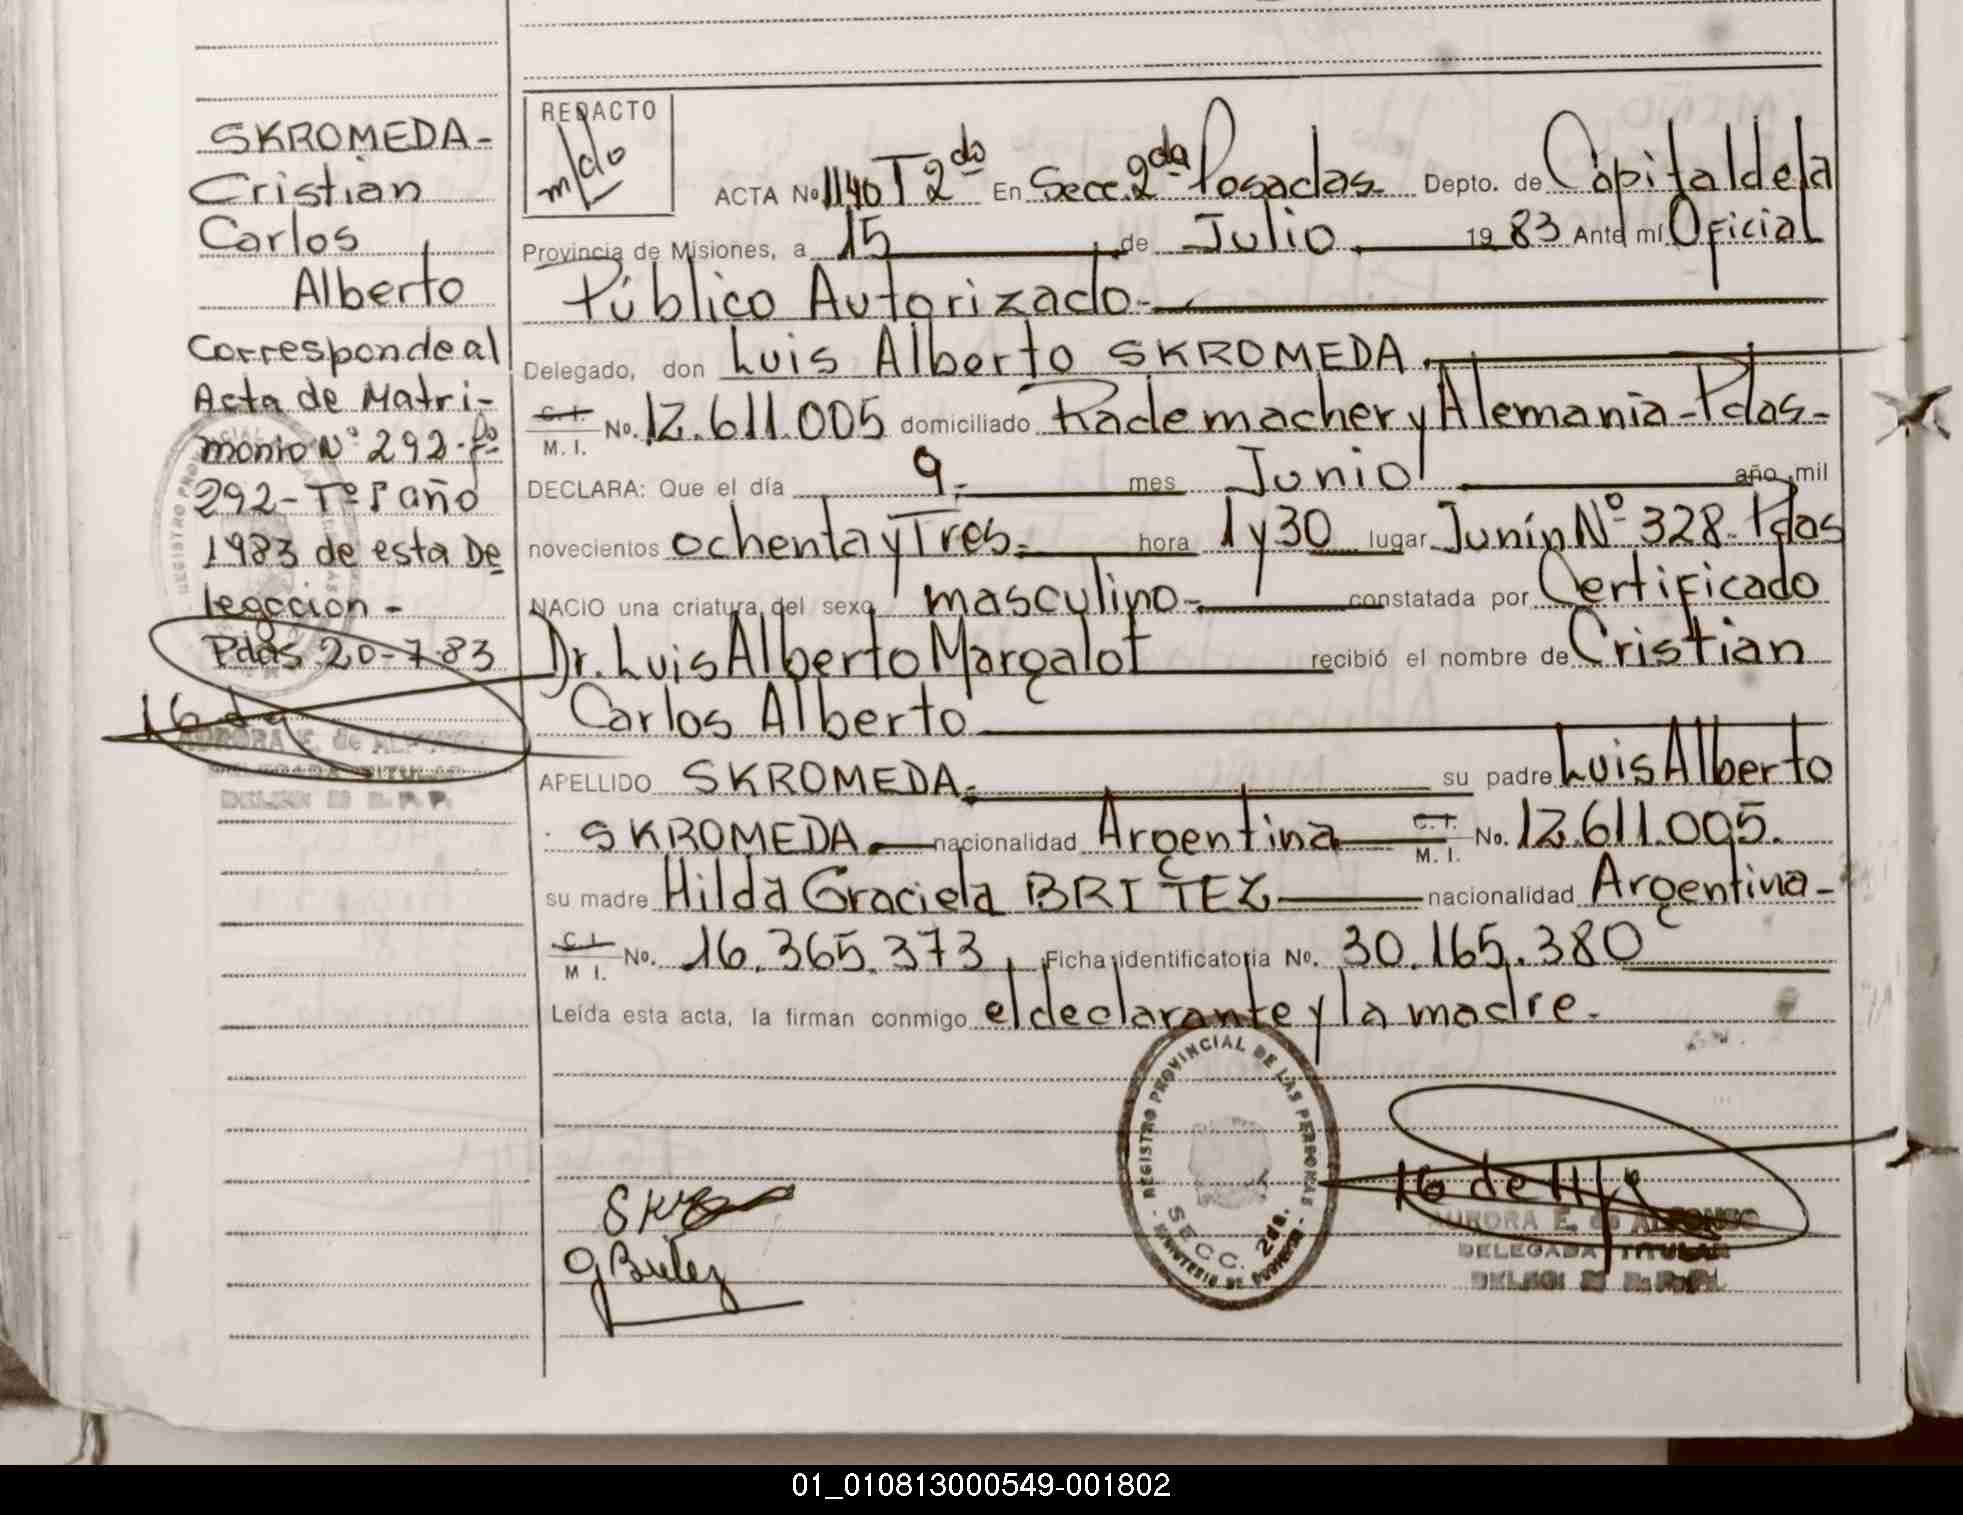 SKROMEDA-
Cristian
Carlos
Alberto
Corresponde al
Acta de Matri-
monio Nº 292-Fo
292-Tº 1º año
1983 de esta De
legacion-
Pdas 20-7-83
AURORA E. de ALFONSO
DELEGADA TITULAR
REDACTO
m/do
ACTA No 1140 T 2do En Secc. 2da Posadas- Depto. de Capital de la
Provincia de Misiones, a 15 de Julio 1983 Ante mí Oficial
Público Autorizado-
Delegado, don Luis Alberto SKROMEDA.
C.I.
M. I. No. 12.611.005 domiciliado Rademacher y Alemania-Pdas-
DECLARA: Que el día 9- mes Junio año mil
novecientos ochenta y Tres- hora 1 y 30 lugar Junín Nº 328-Pdas
NACIO una criatura del sexo masculino- constatada por Certificado
Dr. Luis Alberto Margalot recibió el nombre de Cristian
Carlos Alberto
APELLIDO SKROMEDA- su padre Luis Alberto
SKROMEDA- nacionalidad Argentina C.I.
M. I. No. 12.611.005.
su madre Hilda Graciela BRITEZ nacionalidad Argentina-
C.I.
M I. No. 16.365.373 Ficha identificatoria No. 30.165.380
Leída esta acta, la firman conmigo el declarante y la madre-
REGISTRO PROVINCIAL DE LAS PERSONAS
SECC. 2da.
MINISTERIO DE GOBIERNO
G Britez
AURORA E. de ALFONSO
DELEGADA TITULAR
01_010813000549-001802